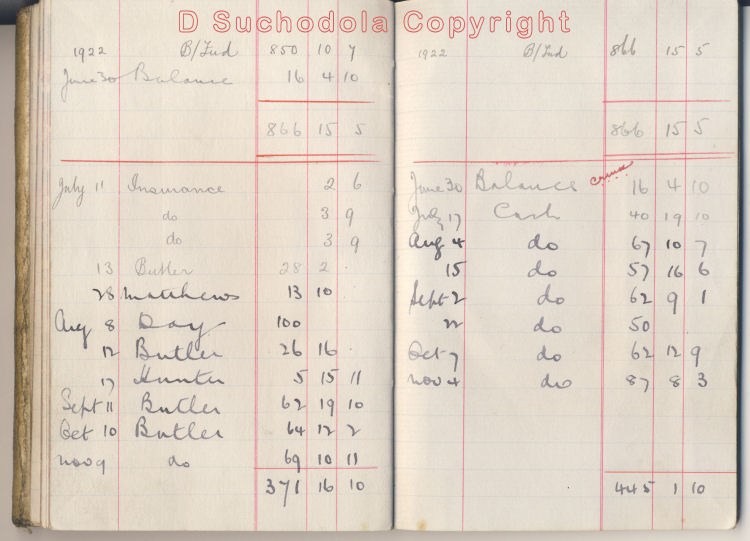 D Suchodola Copyright
1922 B/Fwd 850 10 7
June 30 Balance 16 4 10
866 15 5
July 11 Insurance 2 6
do 3 9
do 3 9
13 Butler 28 2 .
28 Matthews 13 10
Aug 8 Day 100
12 Butler 26 16 .
17 Hunter 5 15 11
Sept 11 Butler 62 19 10
Oct 10 Butler 64 12 2
Nov 9 do 69 10 11
371 16 10
1922 B/Fwd 866 15 5
866 15 5
June 30 Balance 16 4 10
July 17 Cash 40 19 10
Aug 4 do 67 10 7
15 do 57 16 6
Sept 2 do 62 9 1
22 do 50
Oct 7 do 62 12 9
Nov 4 do 87 8 3
445 1 10